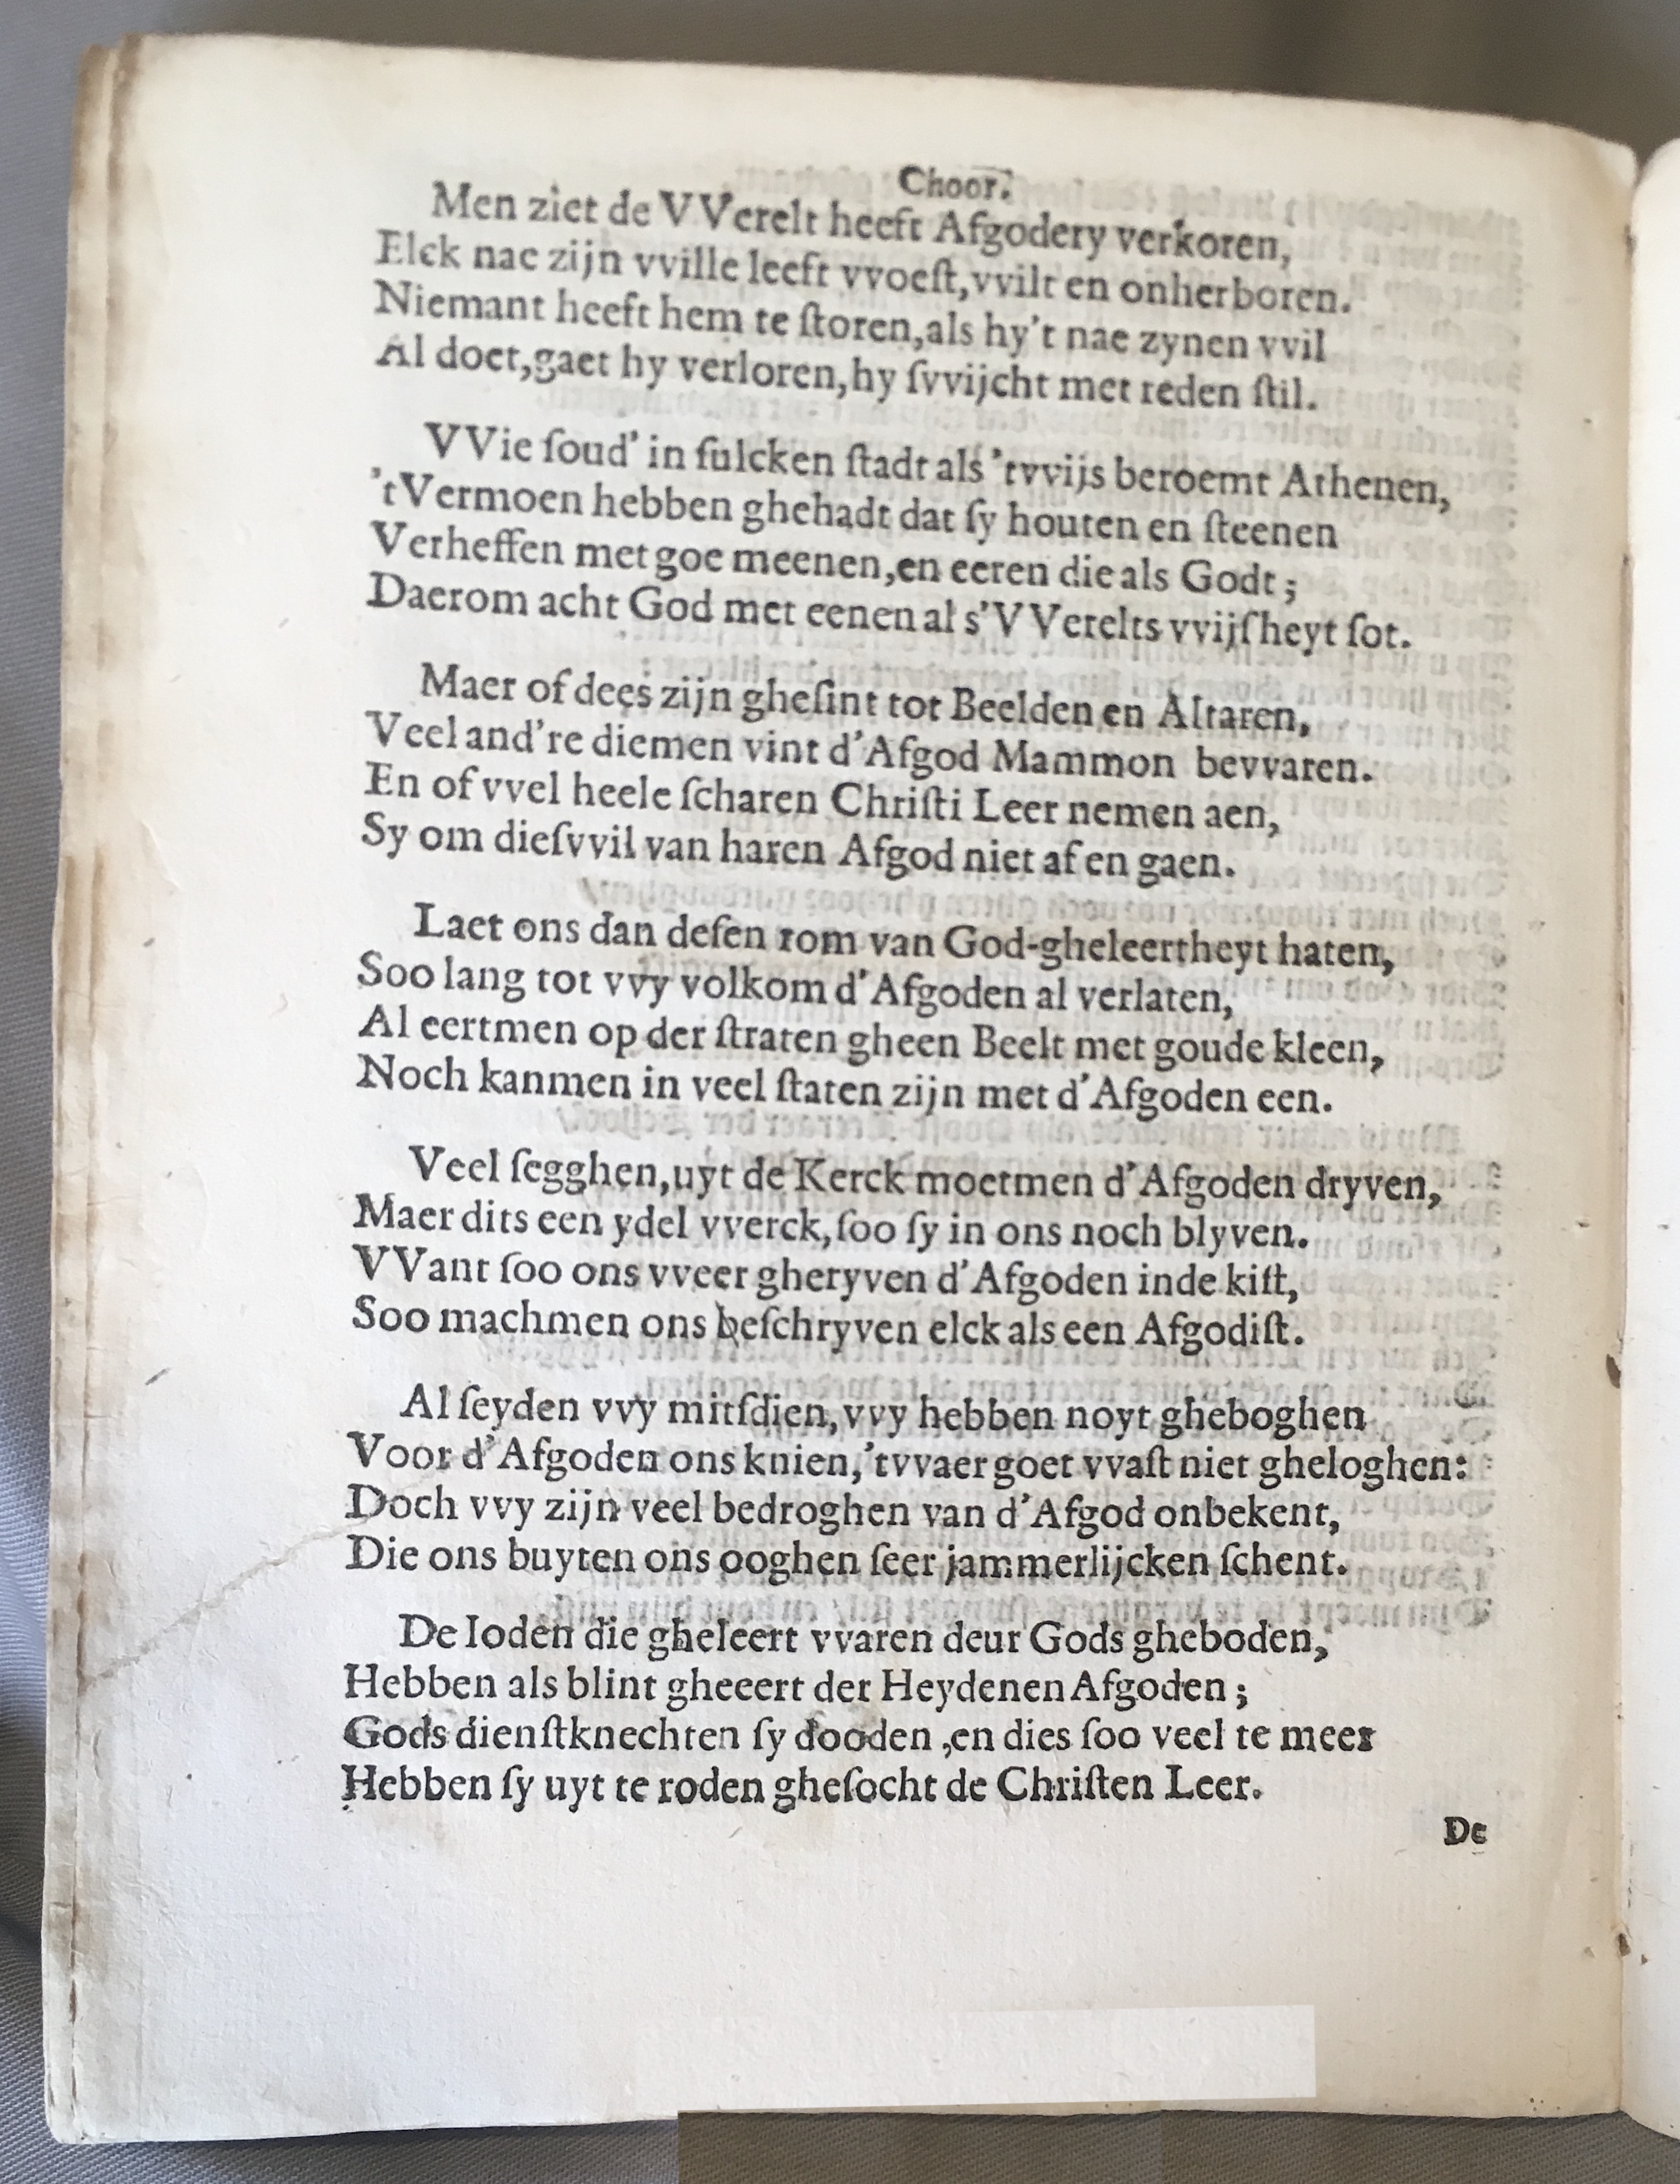 Choor.
Men ziet de VVerelt heeft Afgodery verkoren,
Elck nae zijn vville leeft vvoeſt,vvilt en onherboren.
Niemant heeft hem te ſtoren,als hy't nae zynen vvil
Al doet,gaet hy verloren,hy ſvvijcht met reden ſtil.
VVie ſoud' in ſulcken ſtadt als 'tvvijs beroemt Athenen,
'tVermoen hebben ghehadt dat ſy houten en ſteenen
Verheffen met goe meenen,en eeren die als Godt;
Daerom acht God met eenen al s'VVerelts vvijſheyt ſot.
Maer of dees zijn gheſint tot Beelden en Altaren,
Veel and're diemen vint d'Afgod Mammon bevvaren.
En of vvel heele ſcharen Chriſti Leer nemen aen,
Sy om dieſvvil van haren Afgod niet af en gaen.
Laet ons dan deſen rom van God-gheleertheyt haten,
Soo lang tot vvy volkom d'Afgoden al verlaten,
Al eertmen op der ſtraten gheen Beelt met goude kleen,
Noch kanmen in veel ſtaten zijn met d'Afgoden een.
Veel ſegghen,uyt de Kerck moetmen d'Afgoden dryven,
Maer dits een ydel vverck,ſoo ſy in ons noch blyven.
VVant ſoo ons vveer gheryven d'Afgoden inde kiſt,
Soo machmen ons beſchryven elck als een Afgodiſt.
Al ſeyden vvy mitſdien,vvy hebben noyt gheboghen
Voor d'Afgoden ons knien,'tvvaer goet vvaſt niet gheloghen:
Doch vvy zijn veel bedroghen van d'Afgod onbekent,
Die ons buyten ons ooghen ſeer jammerlijcken ſchent.
De Ioden die gheleert vvaren deur Gods gheboden,
Hebben als blint gheeert der Heydenen Afgoden;
Gods dienſtknechten ſy dooden ,en dies ſoo veel te meer
Hebben ſy uyt te roden gheſocht de Chriſten Leer.
De